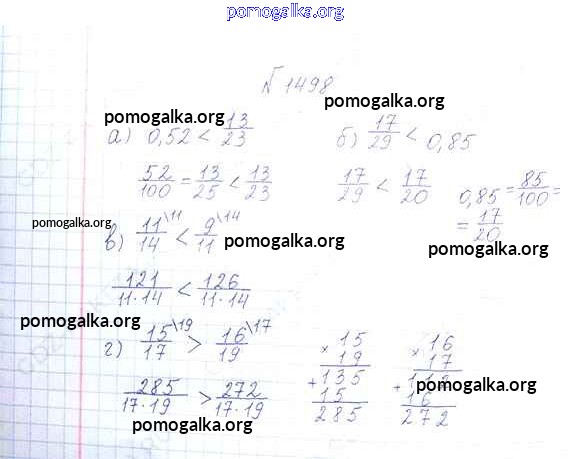 pomogalka.org
№ 1498
pomogalka.org
pomogalka.org
а) 0,52 < 13/23
б) 17/29 < 0,85
52/100 = 13/25 < 13/23
17/29 < 17/20
0,85 = 85/100 =
= 17/20
pomogalka.org
в) 11\11/14 < 9\14/11
pomogalka.org
pomogalka.org
121/11·14 < 126/11·14
pomogalka.org
г) 15\19/17 > 16\17/19
285/17·19 > 272/17·19
×15
19
+135
15
285
×16
17
+112
16
272
pomogalka.org
pomogalka.org
pomogalka.org